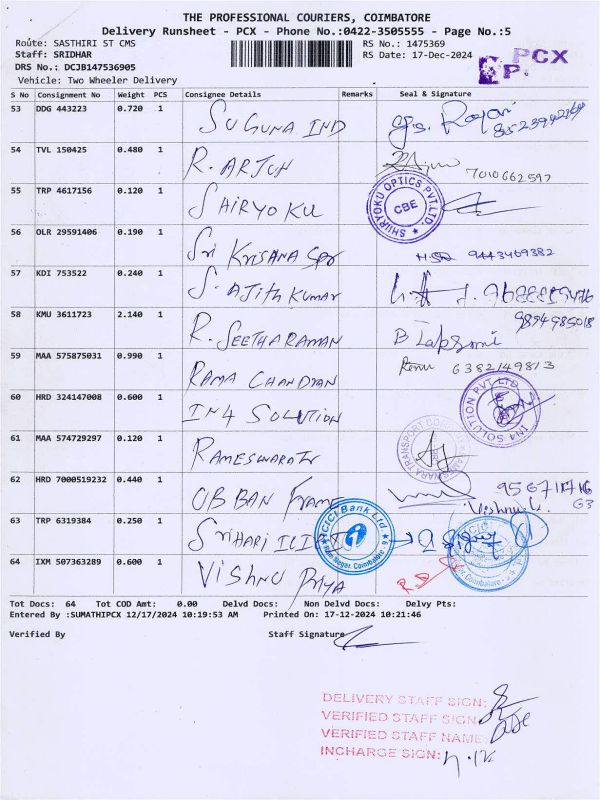 THE PROFESSIONAL COURIERS, COIMBATORE
Delivery Runsheet - PCX - Phone No.:0422-3505555 - Page No.:5
Route: SASTHIRI ST CMS
Staff: SRIDHAR
DRS No.: DCJB147536905
Vehicle: Two Wheeler Delivery
RS No.: 1475369
RS Date: 17-Dec-2024
PCX
S No Consignment No Weight PCS Consignee Details Remarks Seal & Signature
53 DDG 443223 0.720 1 SUGUNA IND
54 TVL 150425 0.480 1 R. ARJUN 7010662597
55 TRP 4617156 0.120 1 SHIRYO KU SHIIRYOKU OPTICS PVT.LTD. CBE
56 OLR 29591406 0.190 1 Sri KRISHNA 9443469382
57 KDI 753522 0.240 1 S. AJITH KUMAR
58 KMU 3611723 2.140 1 R. SEETHARAMAN 9894985018
59 MAA 575875031 0.990 1 RAMA CHANDRAN Renu 6382149813
60 HRD 324147008 0.600 1 IN4 SOLUTION IN4 SOLUTION PVT LTD
61 MAA 574729297 0.120 1 RAMESWARA TR
62 HRD 7000519232 0.440 1 URBAN FRAME Vishnu
63 TRP 6319384 0.250 1 SRIHARI ICICI ICICI Bank Ltd Ram Nagar, Coimbatore
64 IXM 507363289 0.600 1 VISHNU PRIYA
Tot Docs: 64 Tot COD Amt: 0.00 Delvd Docs: Non Delvd Docs: Delvy Pts:
Entered By :SUMATHIPCX 12/17/2024 10:19:53 AM Printed On: 17-12-2024 10:21:46
Verified By Staff Signature
DELIVERY STAFF SIGN:
VERIFIED STAFF SIGN:
VERIFIED STAFF NAME:
INCHARGE SIGN: